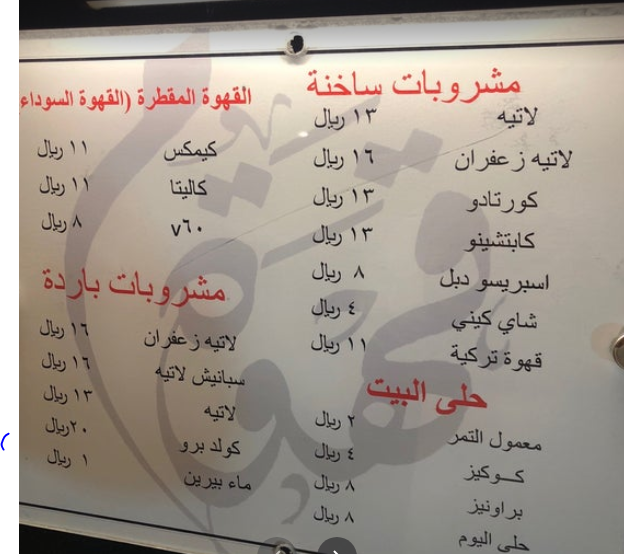 مشروبات ساخنة
لاتيه ١٣ ريال
لاتيه زعفران ١٦ ريال
كورتادو ١٣ ريال
كابتشينو ١٣ ريال
اسبريسو دبل ٨ ريال
شاي كيني ٤ ريال
قهوة تركية ١١ ريال
حلى البيت
معمول التمر ٢ ريال
كوكيز ٤ ريال
براونيز ٨ ريال
حلى اليوم ٨ ريال
القهوة المقطرة (القهوة السوداء
كيمكس ١١ ريال
كاليتا ١١ ريال
v٦٠ ٨ ريال
مشروبات باردة
لاتيه زعفران ١٦ ريال
سبانيش لاتيه ١٦ ريال
لاتيه ١٣ ريال
كولد برو ٢٠ ريال
ماء بيرين ١ ريال
قهوة